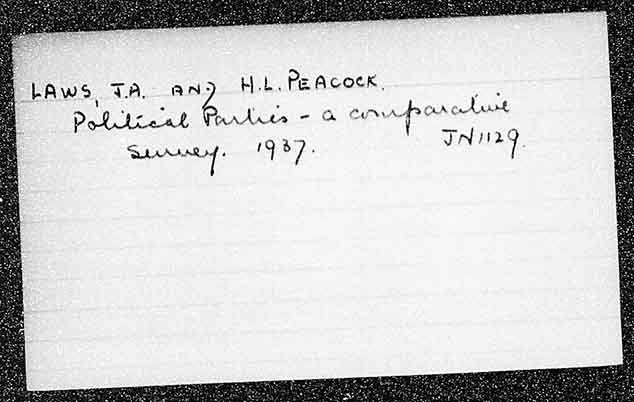 LAWS, J.A. AND H.L. PEACOCK.
Political Parties - a comparative
survey. 1937. JN1129.